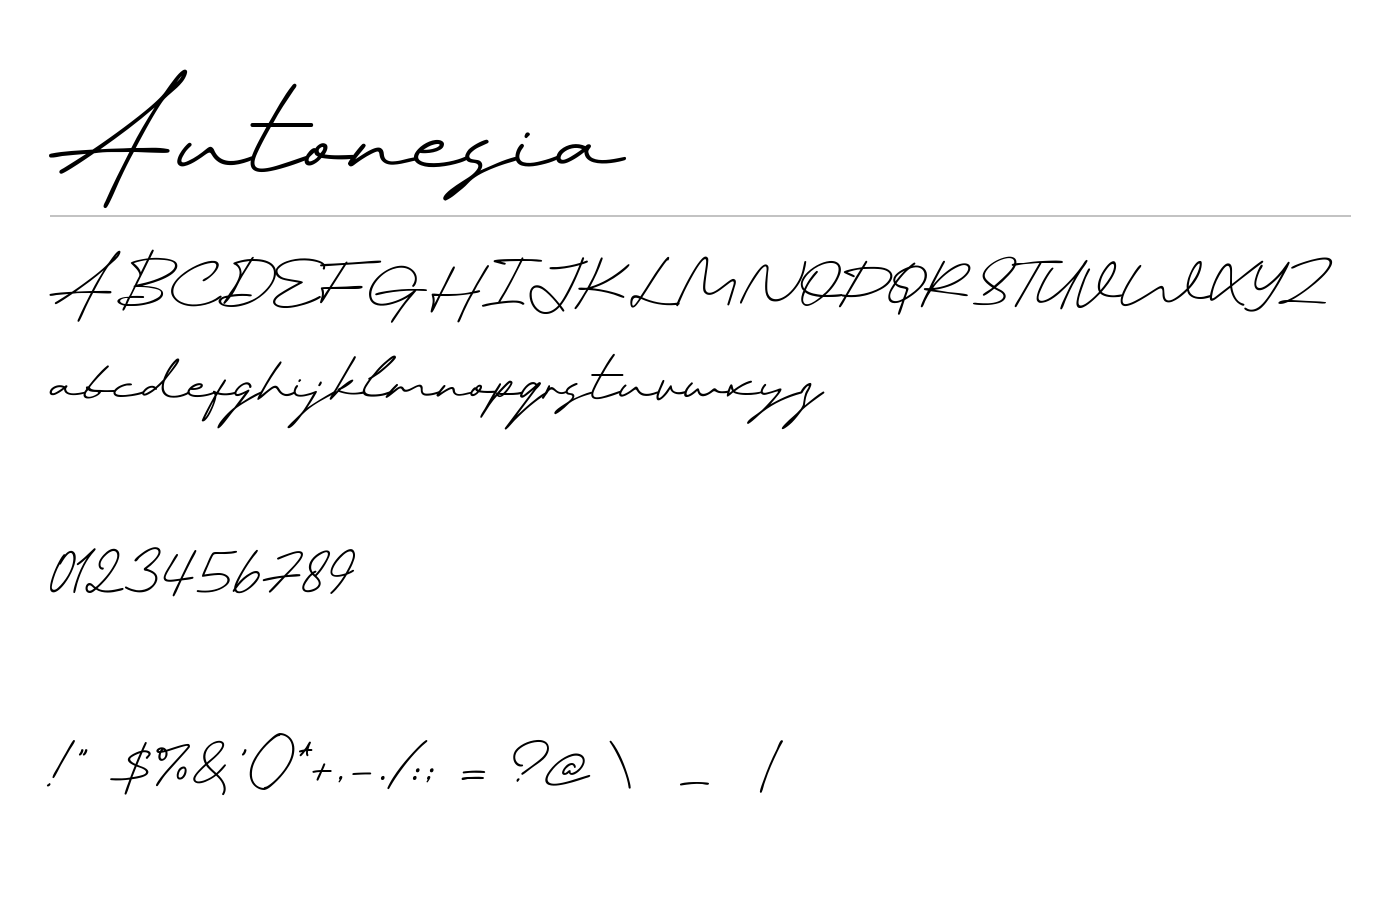 Autonesia
ABCDEFGHIJKLMNOPQRSTUVWXYZ
abcdefghijklmnopqrstuvwxyz
0123456789
!" $%&'()*+,-./:; = ?@ \ _ |